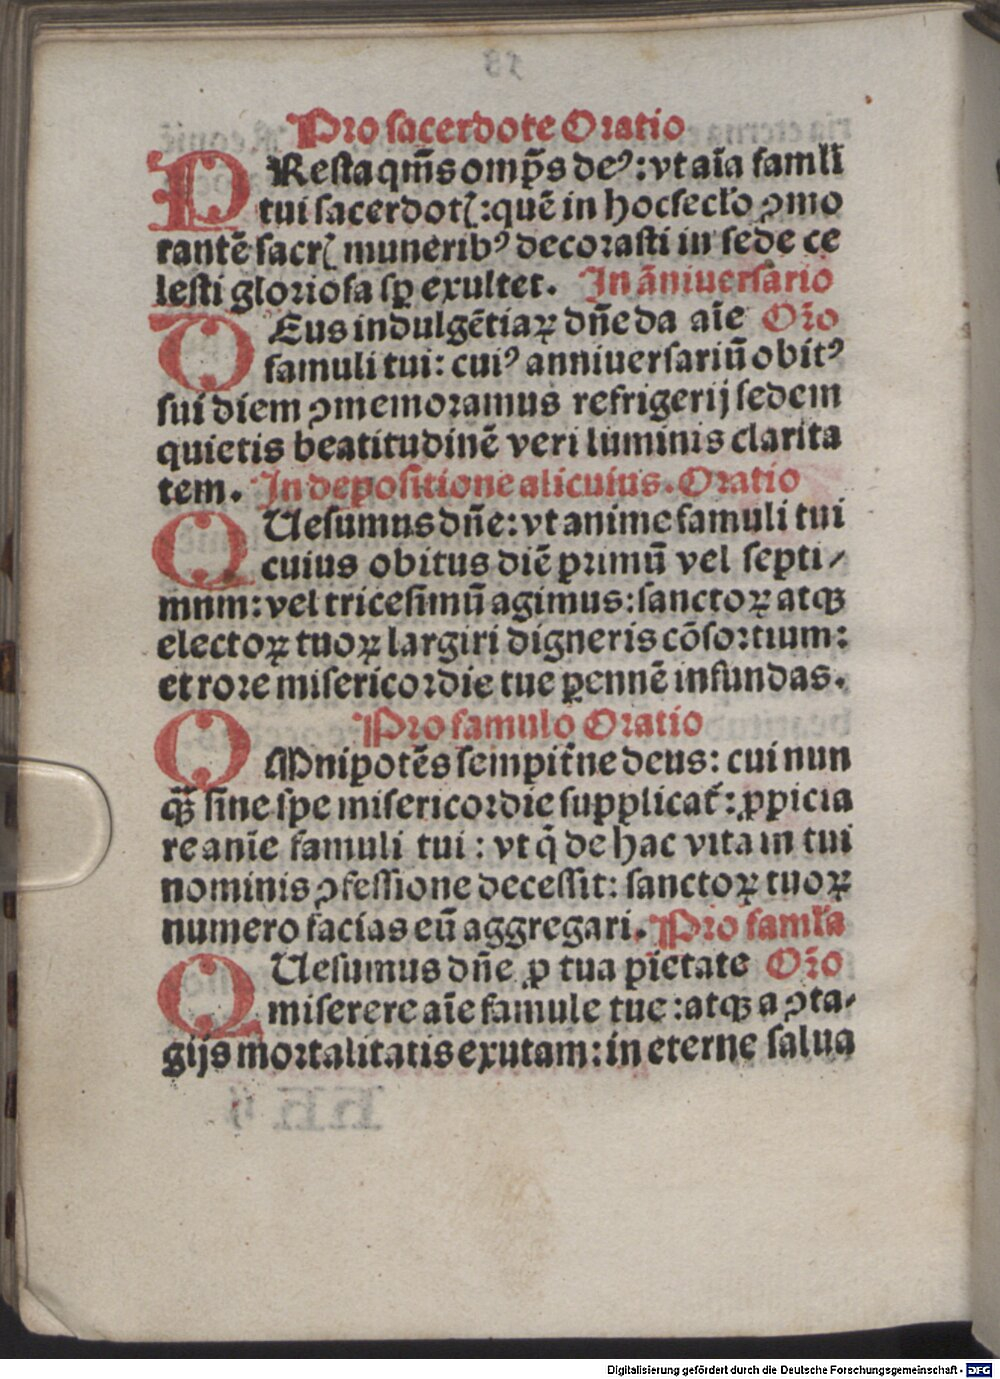 Pro sacerdote Oratio
PResta qm̄s omp̄s deꝰ: vt aīa famłi
tui sacerdotꝭ: quē in hoc secło ꝯmo
rantē sacrꝭ muneribꝰ decorasti in sede ce
lesti gloriosa sꝑ exultet. In āniuersario
DEus indulgētiaꝝ dn̄e da aīe Or̄o
famuli tui: cuiꝰ anniuersariū obitꝰ
sui diem ꝯmemoramus refrigerij sedem
quietis beatitudinē veri luminis clarita
tem. In depositione alicuius. Oratio
QUesumus dn̄e: vt anime famuli tui
cuius obitus diē primū vel septi/
mum: vel tricesimū agimus: sanctoꝝ atqꝫ
electoꝝ tuoꝝ largiri digneris cōsortium:
et rore misericordie tue ꝑennē infundas.
Pro famulo Oratio
OMnipotēs sempit̄ne deus: cui nun
qꝫ̄ sine spe misericordie supplicat᷑: ꝓpicia
re anīe famuli tui: vt q̄ de hac vita in tui
nominis ꝯfessione decessit: sanctoꝝ tuoꝝ
numero facias eū aggregari. Pro famła
QUesumus dn̄e ꝓ tua pietate Or̄o
miserere aīe famule tue: atqꝫ a ꝯta/
gijs mortalitatis exutam: in eterne salua
Digitalisierung gefördert durch die Deutsche Forschungsgemeinschaft - DFG